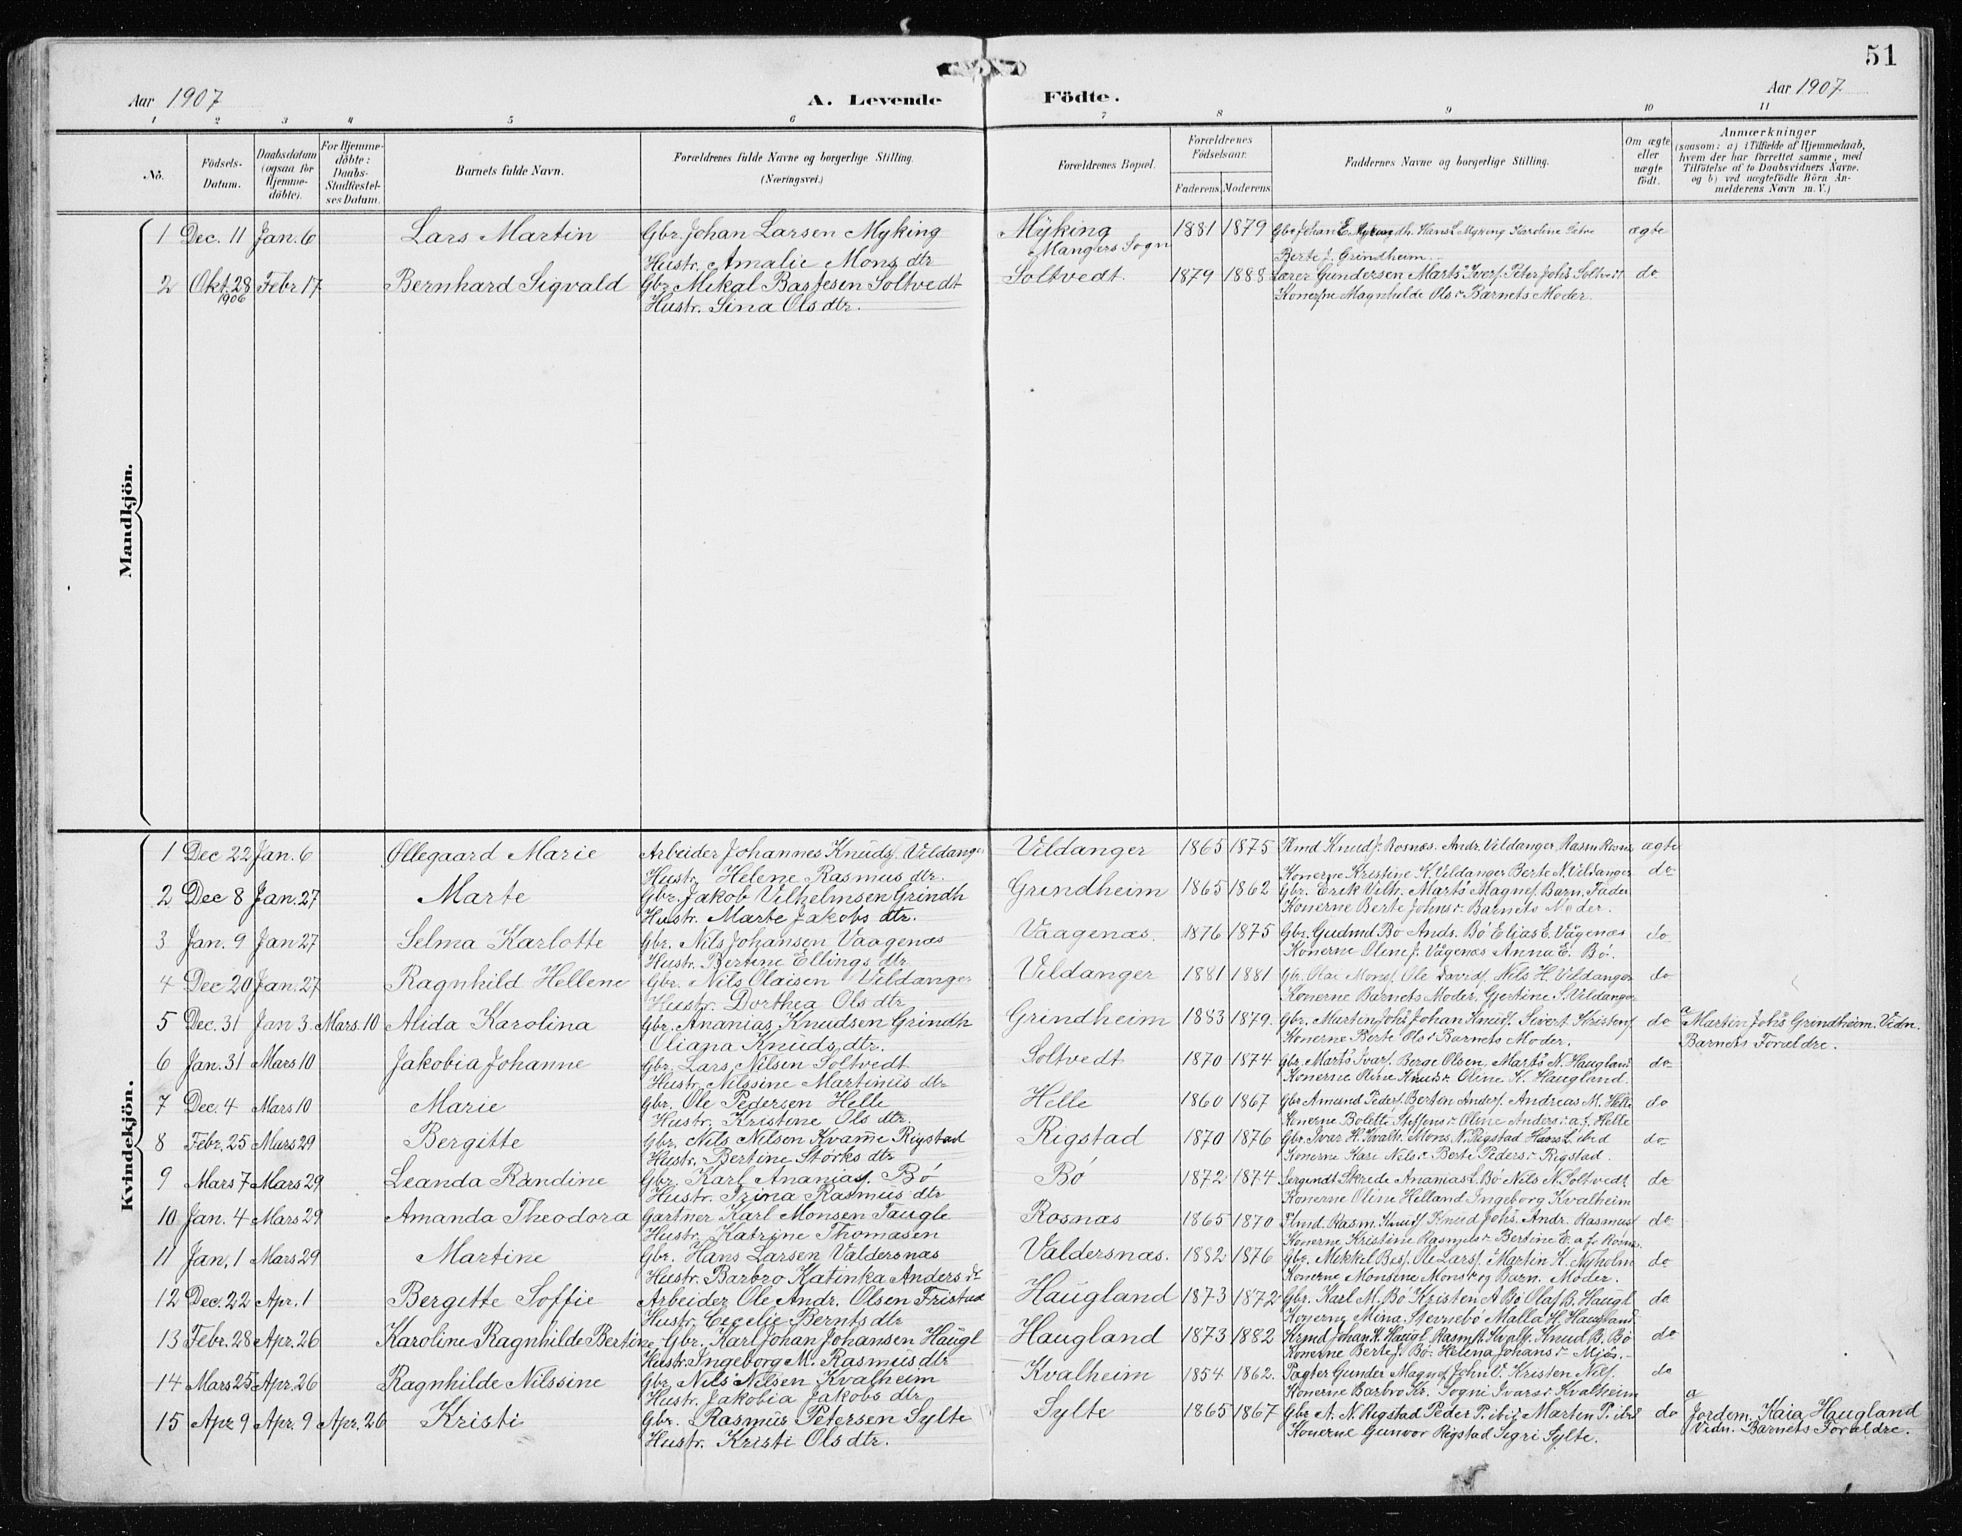 51
Aar 1907 A. Levende Födte. Aar 1907
1 2 3 4 5 6 7 8 9 10 11
No. Födsels-Datum. Daabsdatum (ogsaa for Hjemme-döbte). For Hjemme-döbte: Daabs-Stadfæstel-ses Datum. Barnets fulde Navn. Forældrenes fulde Navne og borgerlige Stilling. (Næringsvei.) Forældrenes Bopæl. Forældrenes Födselsaar. Faderens. Moderens. Faddernes Navne og borgerlige Stilling. Om ægte eller uægte födt. Anmærkninger (saasom: a) i Tilfælde af Hjemmedaab, hvem der har forrettet samme, med Tilföielse af to Daabsvidners Navne. og b) ved uægtefödte Börn An-melderens Navn m. V.)
Mandkjön.
1 Dec. 11 Jan. 6 Lars Martin Gbr. Johan Larsen Myking Myking 1881 1879 Gbr Johan E. Myking Hans L Myking Karoline ægte
Hustr. Amalie Mons dtr Mangers Sogn Berte J. Grindheim.
2 Okt. 28 Febr 17 Bernhard Sigvald Gbr Mikal Basjesen Soltvedt Soltvedt 1879 1888 Lærer Gundersen Marts Ivers. Peter Johs Soltvedt do
1906 Hustr. Sina Ols dtr. Konerne Magnhilde Ols r Barnets Moder.
Kvindekjön.
1 Dec 22 Jan. 6 Øllegaard Marie Arbeider Johannes Knuds. Vildanger Vildanger 1865 1875 Knuds. Rosnæs. Andr. Vildanger, Rasm Rosnæs ægte
Hustr. Helene Rasmus dtr. Konerne Kristine K. Vildanger Berte N. Vildanger
2 Dec 8 Jan. 27 Marte Gbr. Jakob Vilhelmsen Grindh Grindheim 1865 1862 Gbr. Erik Vilh. Marts Magnes. Barn. Fader do
Hustr. Marte Jakobs dtr. Konerne Berte Johns r Barnets Moder.
3 Jan. 9 Jan 27 Selma Karlotte Gbr. Nils Johansen Vaagenæs Vaagenæs. 1876 1875 Gbr. Gudmd Bø Ands. Bø Elias E. Vågenæs do
Hustr. Bertine Ellings dtr. Konerne Oline J. Vågenæs Anna E. Bø.
4 Dec 20 Jan. 27 Ragnhild Hellene Gbr. Nils Olaisen Vildanger Vildanger 1881 1881 Gbr. Olai Mons. Ole Davids. Nils H. Vildanger do
Hustr. Dorthea Ols dtr Konerne Barnets Moder, Gjertine S. Vildanger
5 Dec. 31 Jan 3. Mars. 10 Alida Karolina Gbr. Ananias Knudsen Grindh Grindheim 1883 1879. Gbr. Martin Johs Johan Knuds. Sivert Kristens do a Martin Johs Grindheim. Vidn.
Oliana Knuds dtr. Konerne Berte Ols r Barnets Moder. Barnets Forældre.
6 Jan. 31 Mars 10 Jakobia Johanne Gbr. Lars Nilsen Soltvedt Soltvedt 1870 1874 Gbr. Marts Ivars. Berge Olsen, Marts N. Haugland do
Hustr. Nilssine Martinus dtr Konerne Oline Knuds r Oline K. Haugland.
7 Dec. 4 Mars 10 Marie Gbr. Ole Pedersen Helle Helle 1860 1867 Gbr Amund Peders. Berten Anders. Andreas M. Helle do
Hustr. Kristine Ols dtr. Konerne Bolette Steffens r Oline Anders r a. f. Helle
8 Febr. 25 Mars 29 Bergitte Gbr. Nils Nilsen Kvamme Rigstad Rigstad 1870 1876 Gbr. Ivar H. Kvalh. Mons N. Rigstad Hans L. ibid do
Hustr. Bertine Størks dtr Konerne Kari Nils r Berte Peders r Rigstad.
9 Mars 7 Mars 29 Leanda Randine Gbr. Karl Ananias. Bø Bø 1872 1874 Sergendt Skrede Ananias L. Bø Nils N. Soltvedt do
Hustr. Irina Rasmus dtr Konerne Oline Helland Ingeborg Kvalheim
10 Jan. 4 Mars 29 Amanda Theodora Gartner Karl Monsen Taugle Rosnæs 1865 1870 Rasm. Knuds. Knud Johs. Andr. Rasmus. do
Hustr. Katrine Thomasen Konerne Kristine Rasmus r Bertine E. a. f. Rosnæs
11 Jan. 1 Mars 29 Martine Gbr. Hans Larsen Valdersnæs Valdersnæs. 1882 1876 Gbr. Mekkel Bes. Ole Lars. Martin K. Nyholm do
Hustr. Barbro Katinka Anders dr Konerne Monsine Mons r og Barn. Moder.
12 Dec. 22 Apr. 1 Bergitte Soffie Arbeider Ole Andr. Olsen Haugland 1873 1872 Gbr. Karl M. Bø Kristen A Bø Olaf B. Haugl do
Hustr. Cecelie Bernts dtr Konerne Mina Stevnebø Malla H. Haugland
13 Febr. 28 Apr. 26 Karoline Ragnhilde Bertine Gbr. Karl Johan Johansen Haugl Haugland 1873 1882 Johan K. Haugl. Rasm. K. Knud B. Bø do
Hustr. Ingeborg M. Rasmus dtr Konerne Berte J. Bø. Helena Johans r Mjøs.
14 Mars 25 Apr. 26 Ragnhilde Nilssine Gbr. Nils Nilsen Kvalheim Kvalheim 1854 1862. Pagter Gunder Magn. John V. Kristen Nils. do
Hustr. Jakobia Jakobs dtr Konerne Barbro Kr. Sogni Ivars r Kvalheim
15 Apr 9 Apr. 9 Apr. 26 Kristi Gbr. Rasmus Petersen Sylte Sylte 1865 1867 Gbr A. N. Rigstad Peder P. ibid Marten P. ibid do a Jordem. Kaia Haugland
Hustr. Kristi Ols dtr. Konerne Gunvor Rigstad Sigri Sylte. Vidn. Barnets Forældre.